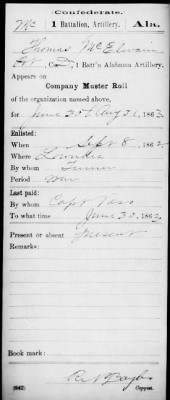 Confederate.
Mc 1 Battalion, Artillery. Ala.
Thomas McElvain
Pvt, Co. D, 1 Batt'n Alabama Artillery.
Appears on
Company Muster Roll
of the organization named above,
for June 30 to Aug 31, 1863
Enlisted:
When Sept 8, 186
Where Lowndes
By whom
Period War
Last paid:
By whom Capt
To what time June 30, 1863
Present or absent Present
Remarks:
Book mark:
(642) Copyist.